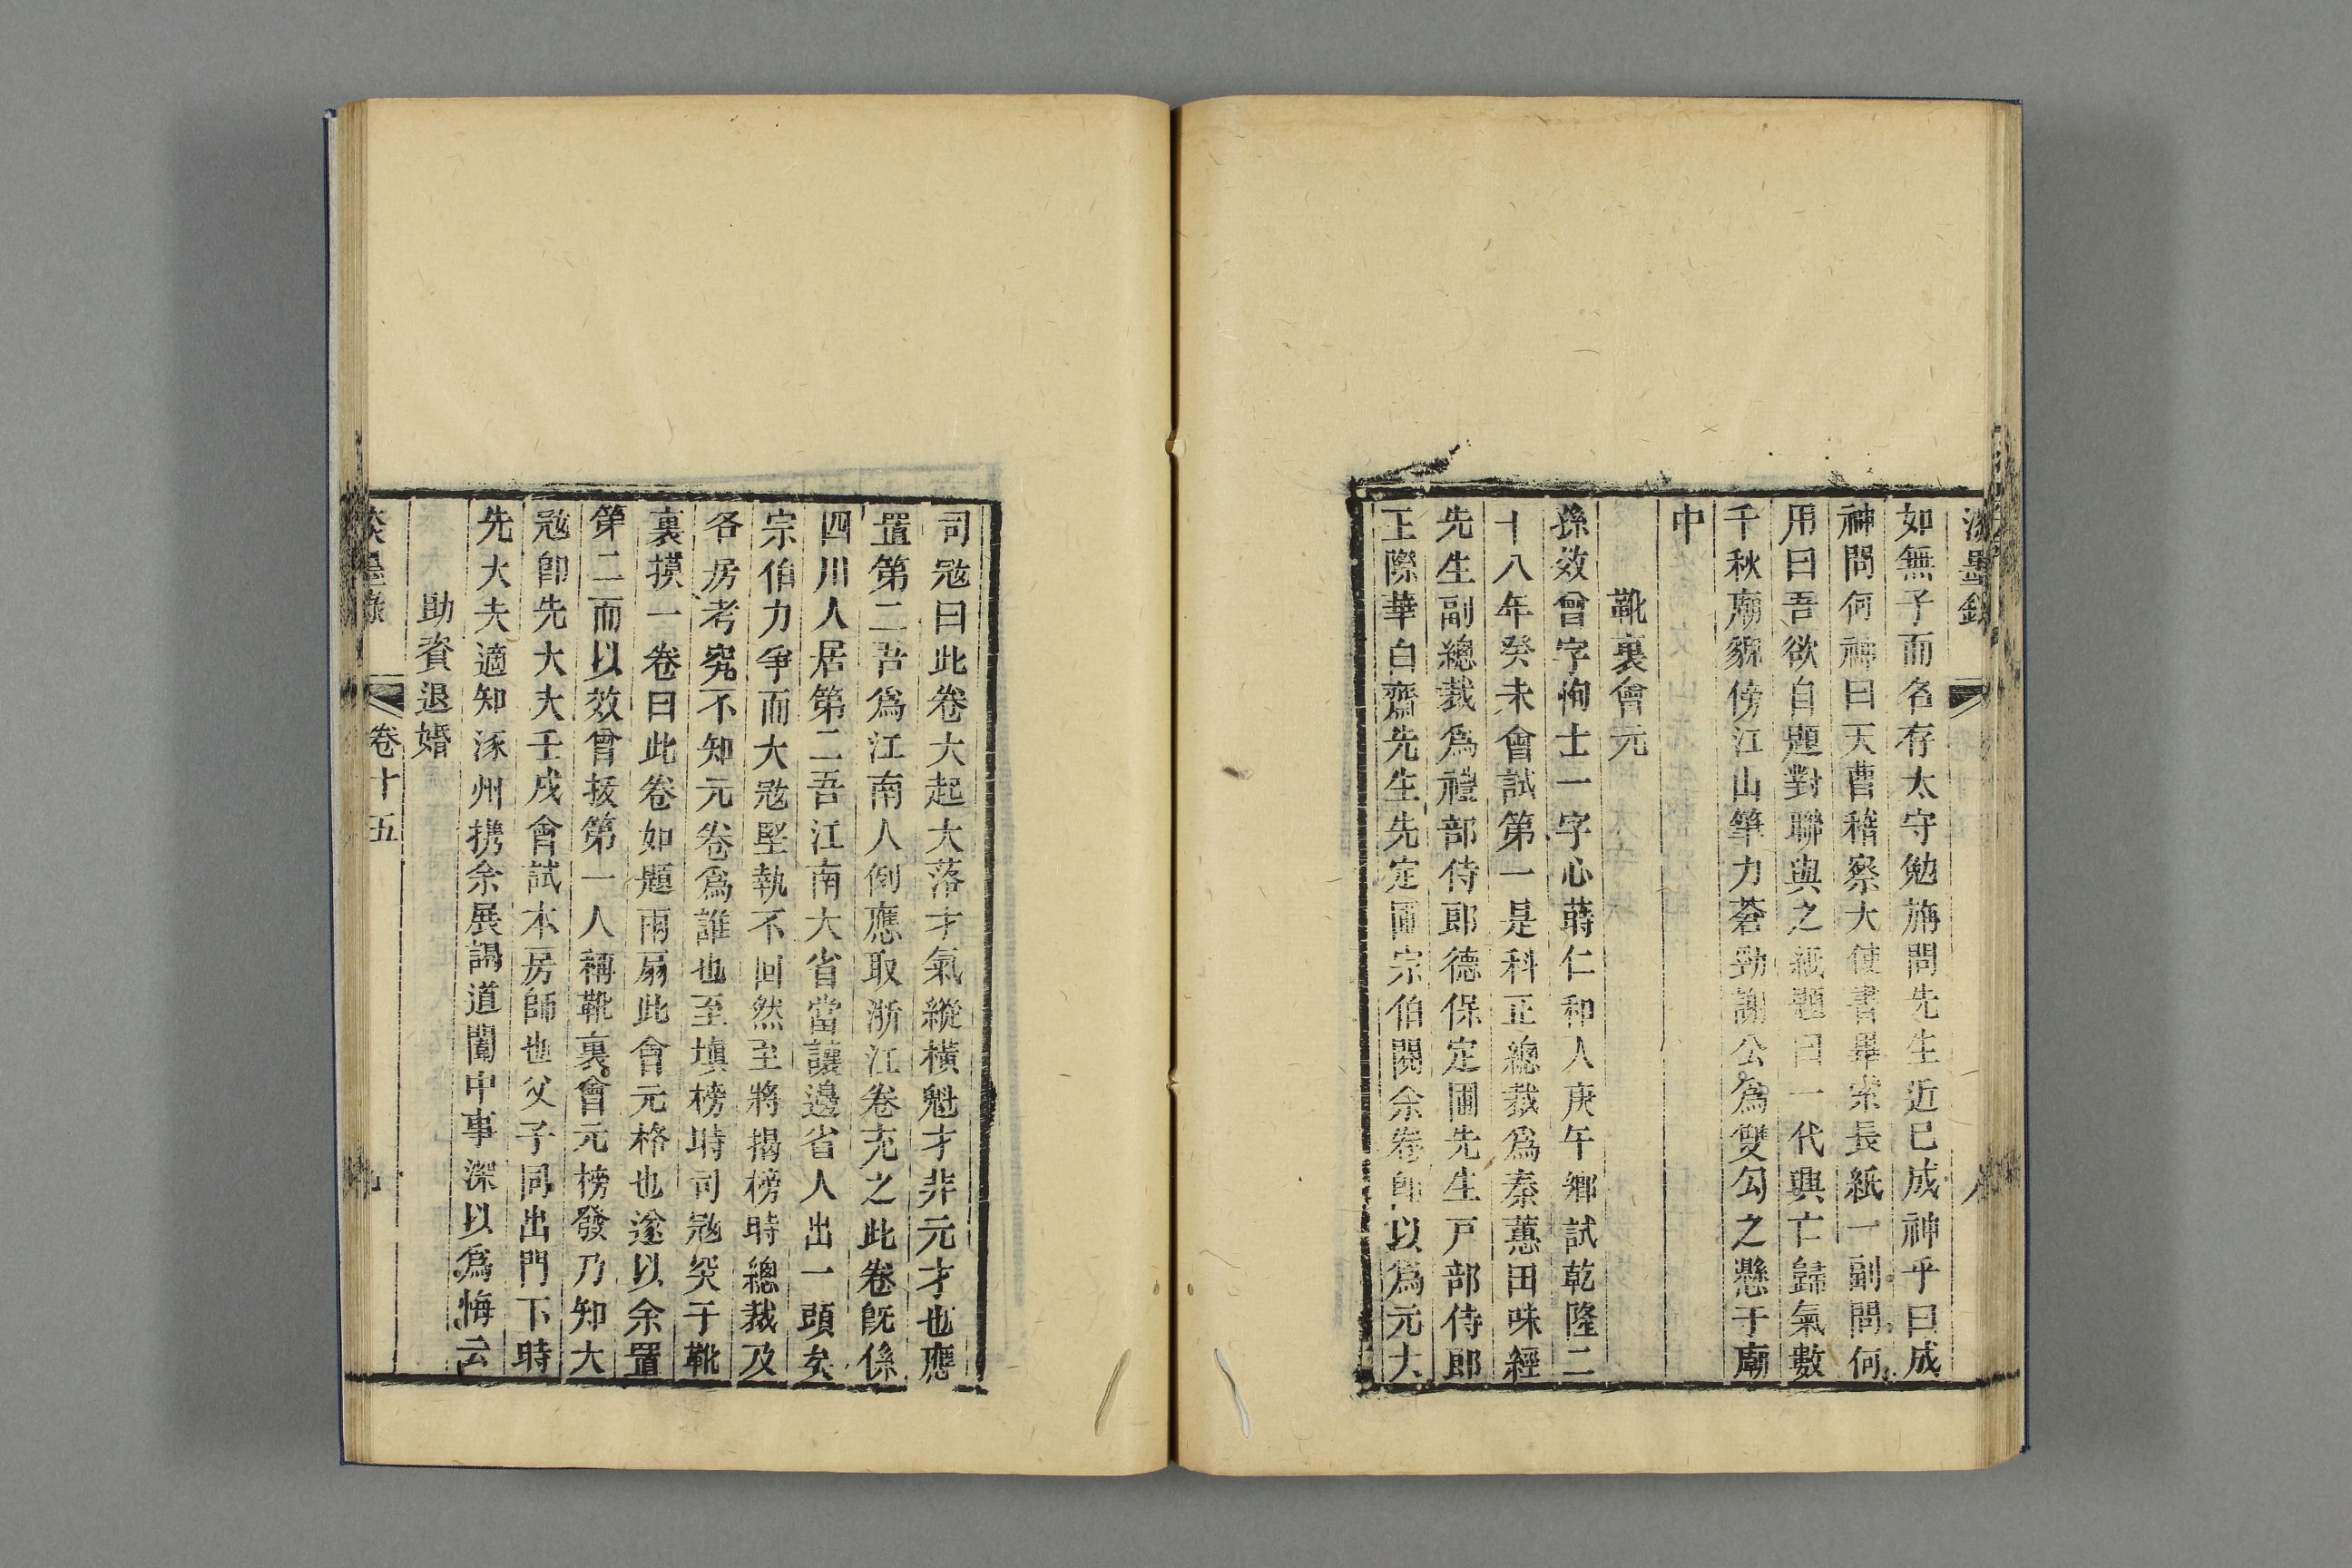 淡墨錄
如無子而名存太守勉旃問先生近已成神乎曰成
神問何神曰天曹稽察大使書畢索長紙一副問何
用曰吾欲自題對聯與之紙題曰一代興亡歸氣數
千秋廟貌傍江山筆力蒼勁謝公爲雙勾之懸于廟
中
靴裏會元
孫效曾字恂士一字心蒔仁和人庚午鄉試乾隆二
十八年癸未會試第一是科正總裁爲秦蕙田味經
先生副總裁爲禮部侍郎德保定圃先生戸部侍郎
王際華白齋先生先定圃宗伯閱余卷卽以爲元大
司冦曰此卷大起大落才氣縱橫魁才非元才也應
置第二吾爲江南人倒應取浙江卷充之此卷旣係
四川人居第二吾江南大省當讓邊省人出一頭矣
宗伯力爭而大冦堅執不回然至將揭榜時總裁及
各房考究不知元卷爲誰也至填榜時司冦突于靴
裏摸一卷曰此卷如題兩扇此會元格也遂以余置
第二而以效曾拔第一人稱靴裏會元榜發乃知大
冦卽先大夫壬戌會試本房師也父子同出門下時
先大夫適知涿州携余展謁道闈中事深以爲悔云
助資退婚
淡墨錄 卷十五 九